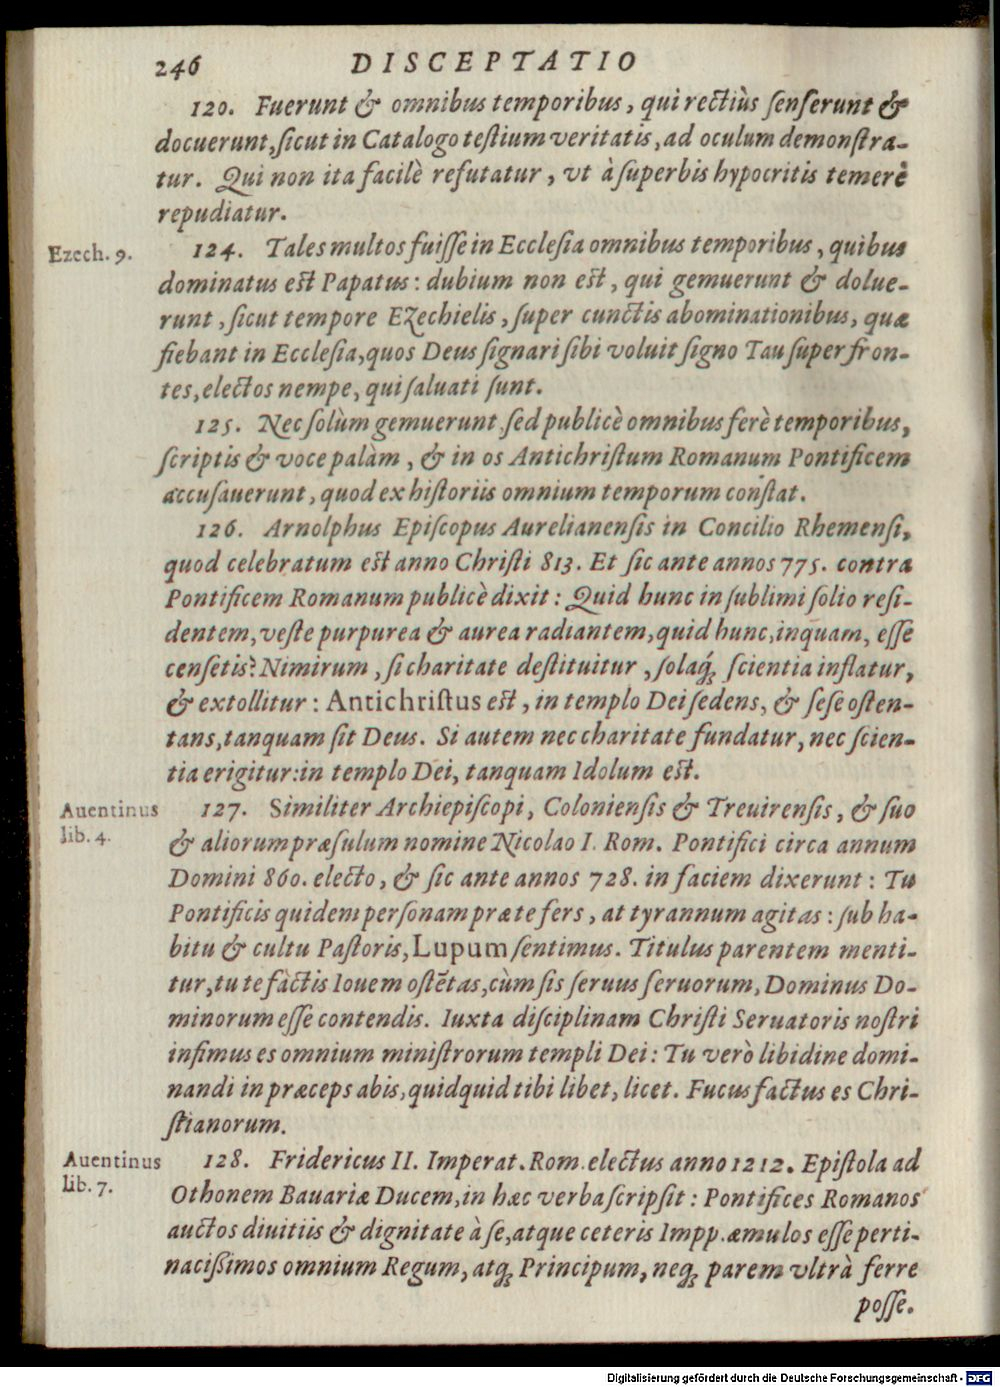 246 DISCEPTATIO
120. Fuerunt & omnibus temporibus, qui rectiùs ſenſerunt &
docuerunt, ſicut in Catalogo teſtium veritatis, ad oculum demonſtra-
tur. Qui non ita facilè refutatur, vt à ſuperbis hypocritis temerè
repudiatur.
Ezech. 9. 124. Tales multos fuiſſe in Eccleſia omnibus temporibus, quibus
dominatus eſt Papatus: dubium non eſt, qui gemuerunt & dolue-
runt, ſicut tempore EZechielis, ſuper cunctis abominationibus, quæ
fiebant in Eccleſia, quos Deus ſignari ſibi voluit ſigno Tau ſuper fron-
tes, electos nempe, qui ſaluati ſunt.
125. Nec ſolùm gemuerunt ſed publicè omnibus ferè temporibus,
ſcriptis & voce palàm, & in os Antichriſtum Romanum Pontificem
accuſauerunt, quod ex hiſtoriis omnium temporum conſtat.
126. Arnolphus Epiſcopus Aurelianenſis in Concilio Rhemenſi,
quod celebratum eſt anno Chriſti 813. Et ſic ante annos 775. contra
Pontificem Romanum publicè dixit: Quid hunc in ſublimi ſolio reſi-
dentem, veſte purpurea & aurea radiantem, quid hunc, inquam, eſſe
cenſetis? Nimirum, ſi charitate deſtituitur, ſolaq́; ſcientia inflatur,
& extollitur: Antichriſtus eſt, in templo Dei ſedens, & ſeſe oſten-
tans, tanquam ſit Deus. Si autem nec charitate fundatur, nec ſcien-
tia erigitur: in templo Dei, tanquam Idolum eſt.
Auentinus lib. 4. 127. Similiter Archiepiſcopi, Colonienſis & Treuirenſis, & ſuo
& aliorum præſulum nomine Nicolao I. Rom. Pontifici circa annum
Domini 860. electo, & ſic ante annos 728. in faciem dixerunt: Tu
Pontificis quidem perſonam præ te fers, at tyrannum agitas: ſub ha-
bitu & cultu Paſtoris, Lupum ſentimus. Titulus parentem menti-
tur, tu te fàctis Iouem oſtẽtas, cùm ſis ſeruus ſeruorum, Dominus Do-
minorum eſſe contendis. Iuxta diſciplinam Chriſti Seruatoris noſtri
infimus es omnium miniſtrorum templi Dei: Tu verò libidine domi-
nandi in præceps abis, quidquid tibi libet, licet. Fucus factus es Chri-
ſtianorum.
Auentinus lib. 7. 128. Fridericus II. Imperat. Rom. electus anno 1212. Epiſtola ad
Othonem Bauariæ Ducem, in hæc verba ſcripſit: Pontifices Romanos
auctos diuitiis & dignitate à ſe, atque ceteris Impp. æmulos eſſe perti-
naciſſimos omnium Regum, atq; Principum, neq; parem vltrà ferre
poſſe.
Digitalisierung gefördert durch die Deutsche Forschungsgemeinschaft - DFG